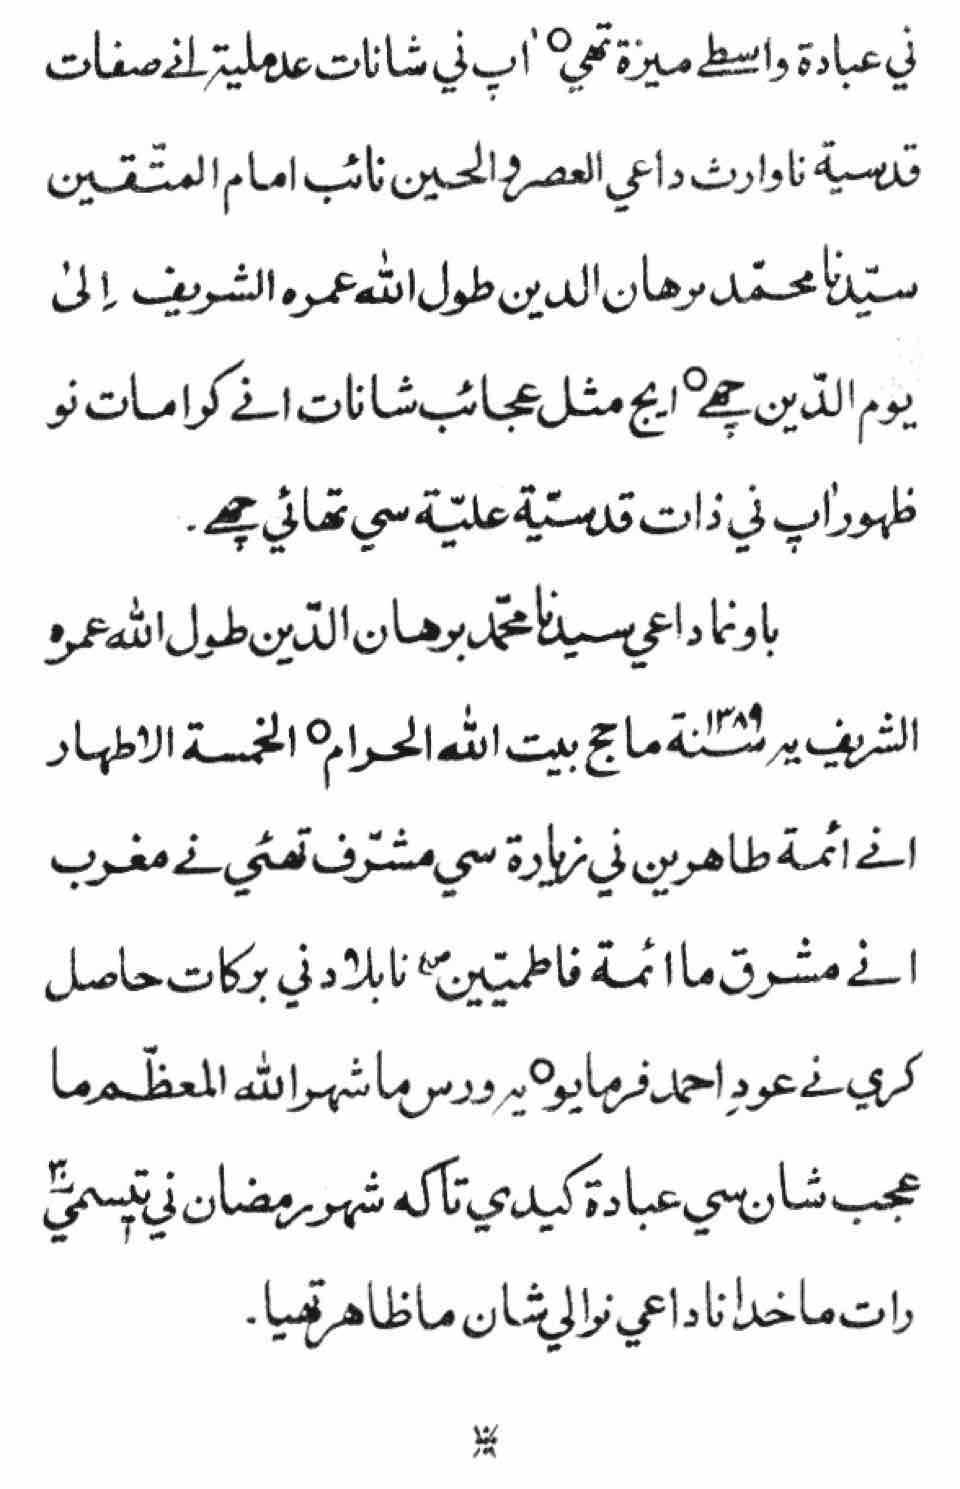 ني عبادة واسطے ميزة تهي° اٰپ ني شانات عدملية انے صفات
قدسية نا وارث داعي العصر و الحين نائب امام المتّقين
سيّدنا محمّد برهان الدين طول الله عمره الشريف إلىٰ
يوم الدّين چھے° ايج مثل عجائب شانات انے كرامات نو
ظهور اٰپ ني ذات قدسيّة عليّة سي تهائي چھے.
باونما داعي سيدنا محمّد برهان الدّين طول الله عمره
الشريف يہ ١٣٨٩ سنة ما حج بيت الله الحرام° الخمسة الاطهار
انے أئمة طاهرين ني زيارة سي مشرّف تهئي نے مغرب
انے مشرق ما ائمة فاطميّين ص ع نا بلاد ني بركات حاصل
كري نے عودِ احمد فرمايو° يہ ورس ما شهر الله المعظّم ما
عجب شان سي عبادة كيدي تاكه شهر رمضان ني تيسمي ٣٠
رات ما خدا نا داعي نرالي شان ما ظاهر تهيا.